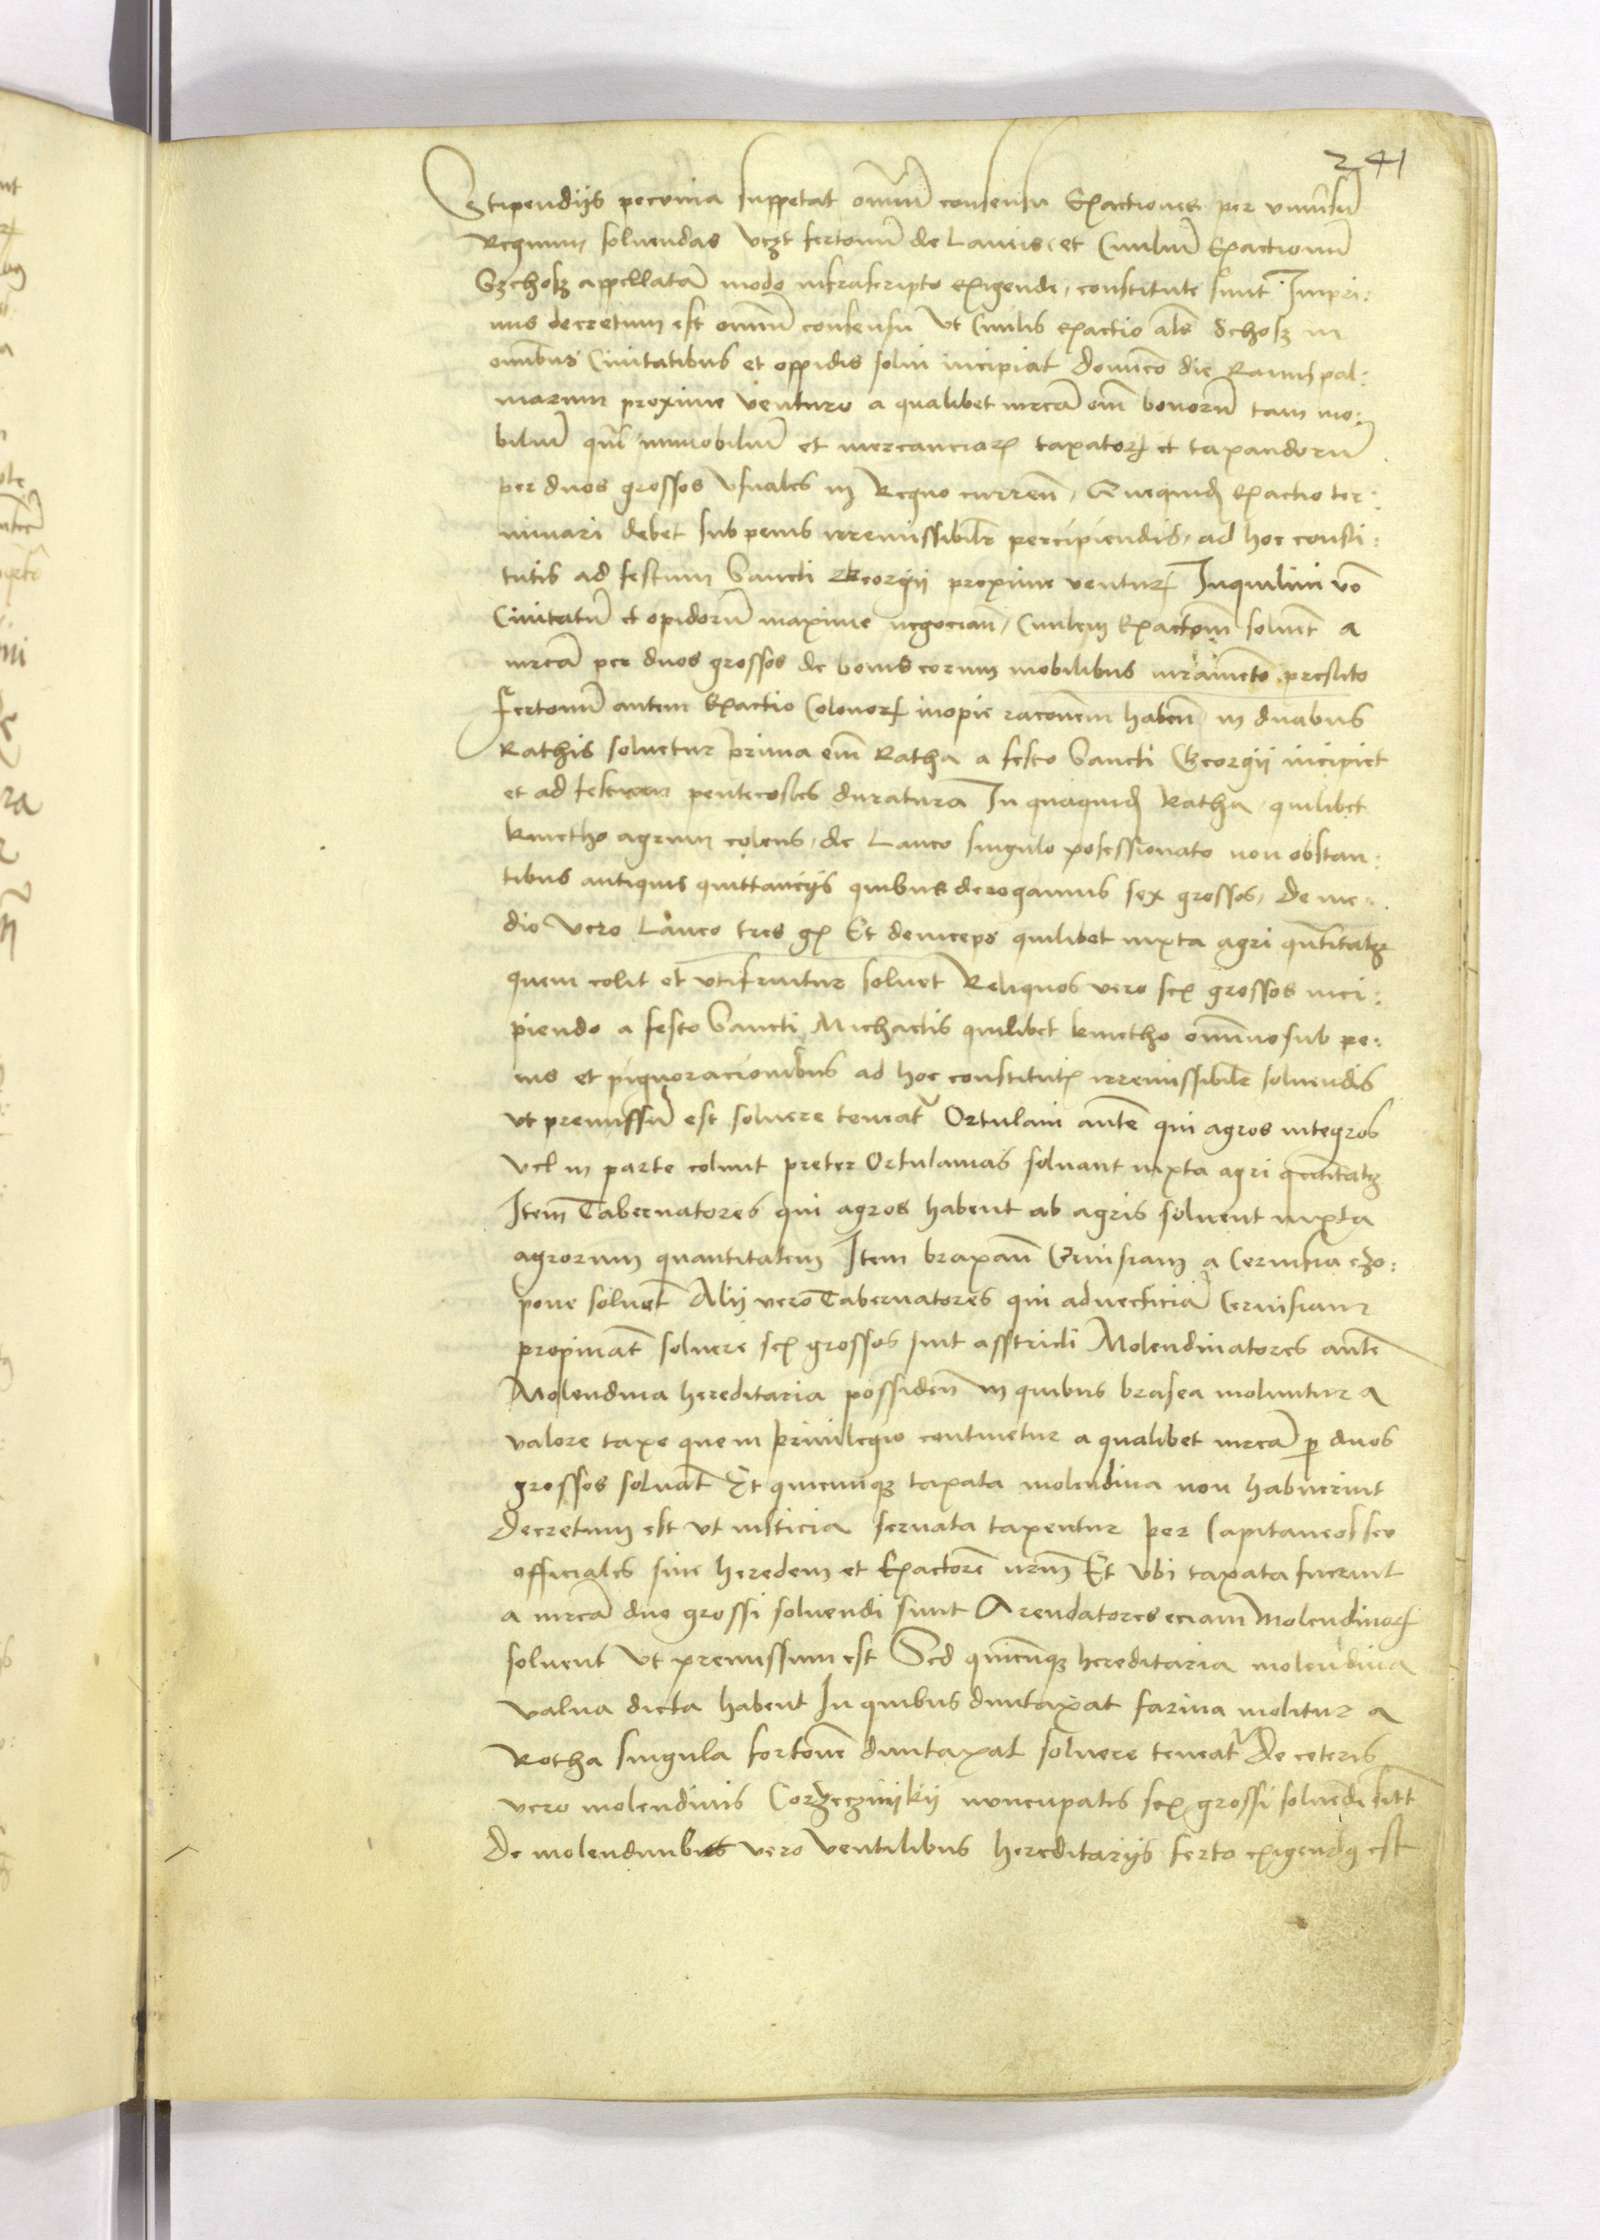 241
Stipendijs pecunia suppetat om̄iū consensu Exactiones per vniūsū
Regnum soluendas vcȝt fertonū de Laneis et Ciuiliū Exactionū
Szchosz appellatā modo infrascripto exigende constitute sunt Inpri:
mis decretum est om̄iū consensu vt Ciuilis exactio al̄s Schosz in
om̄ibus Ciuitatibus et oppidis solui incipiat Domīco die Ramispal:
marum proxime venturo a qualibet mrcā om̄ bonorū tam mo:
biliū qm̄ immobiliū et mercanciarꝫ taxatorꝫ et taxandorū
per duos grossos vsuales in Regno curren̄ Quequid exactio ter:
minari debet sub penis irremissibilr percipiendis ad hoc consti:
tutis ad festum Sancti Georgii proxime venturꝫ Inquilini vō
Ciuitatū et opidorū maxime negocian̄ Ciuilem Exactōm̄ soluūt a
mrcā per duos grossos de bonis eorum mobilibus iuramēto prestito
Fertonū autem Exactio Colonorꝫ inopie racōnem haben̄ in duabus
Rathis soluetur prima em̄ Ratha a festo Sancti Georgii incipiet
et ad festum pentecostes duratura In quaquid Ratha quilibet
kmetho agrum colens de Laneo singulo possessionato non obstan:
tibus antiquis quittancijs quibus derogamus sex grossos De me:
dio vero Laneo tres gꝫ Et deinceps quilibet iuxta agri qūtitatē
quem colit et vtifruitur soluet Reliquos vero sex grossos inci:
piendo a festo Sancti Michaelis quilibet kmetho om̄ino sub pe:
nis et pignoracionibus ad hoc constitutꝫ irremissibilr soluendis
vt premissū est soluere teneatr Ortulani autē qui agros integros
vel in parte colunt preter Ortulanias soluant iuxta agri quātitatē
Item Tabernatores qui agros habent ab agris soluent iuxta
agrorum quantitatem Item braxan̄ Ceruisiam a Ceruisia czo:
pone soluēt Alij vero Tabernatores qui aduecticiā Ceruisiam
propināt soluere sex grossos sint asstricti Molendinatores autē
Molendina hereditaria possiden̄ in quibus brasea moluntur a
valore taxe que in priuilegio continetur a qualibet mrcā ꝑ duos
grossos soluāt Et quicunqꝫ taxata molendina non habuerint
Decretum est vt iusticia seruata taxentur per Capitaneos seu
officiales siue heredem et Exactorē nrm̄ Et vbi taxata fuerint
a mrcā duo grossi soluendi sunt Arendatores eciam Molendinorꝫ
soluent vt premissum est Sed quicūqꝫ hereditaria molendina
valua dicta habent In quibus duntaxat farina molitur a
Rotha singula fertonē duntaxat soluere teneatr De ceteris
vero molendinis Corzecznijkij nuncupatis sex grossi soluēdi sūt
De molendinibus vero ventilibus hereditarijs ferto exigendꝯ est